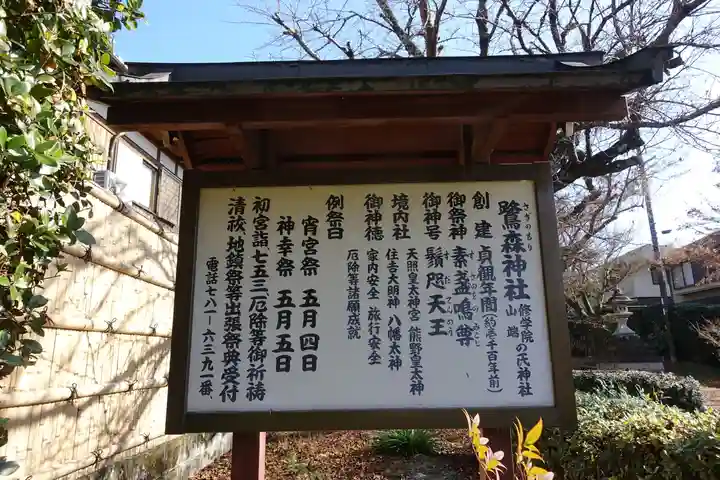 鷺森神社 修学院 山端 の氏神社
さぎのもり
創建 貞観年間(約壱千百年前)
御祭神 素盞嗚尊
す さのをのみこと
御神号 鬚咫天王
境内社 天照皇太神宮 熊野皇太神
住吉大明神 八幡太神
御神徳 家内安全 旅行安全
厄除等諸願成就
例祭日
宵宮祭 五月四日
神幸祭 五月五日
初宮詣七五三厄除等御祈祷
清祓 地鎮祭等出張祭典受付
電話七八一-六三九一番